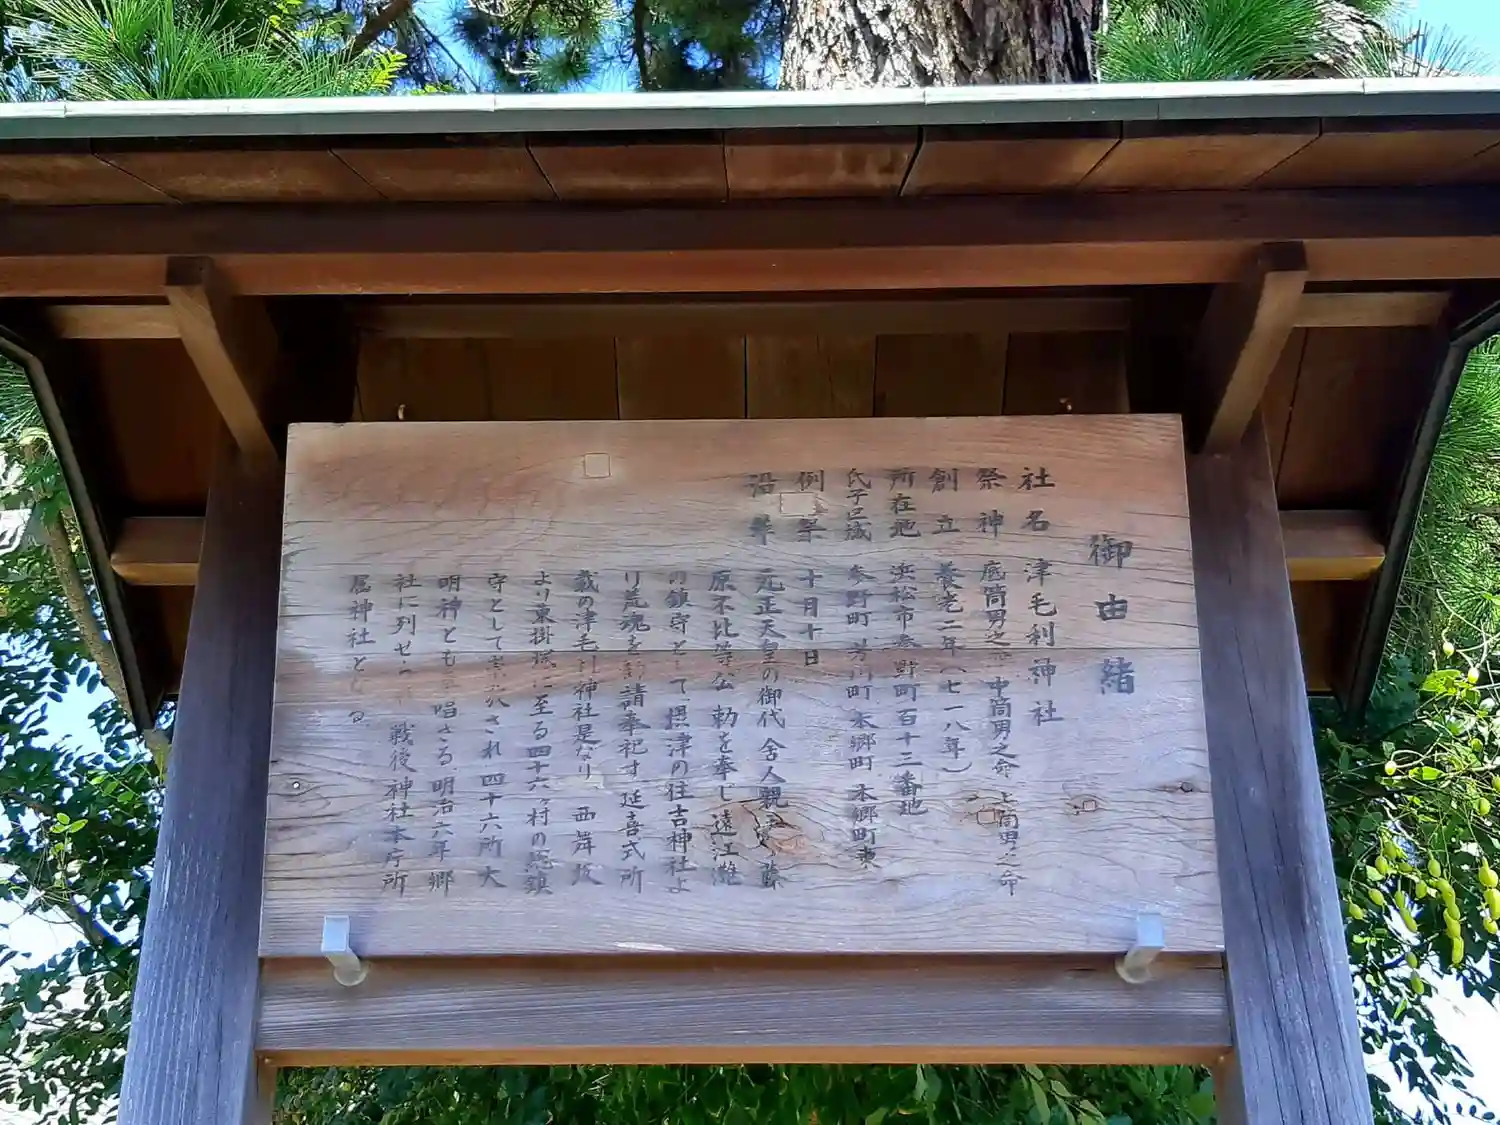 御由緒
社名 津毛利神社
祭神 底筒男之命 中筒男之命 上筒男之命
創立 養老二年(七一八年)
所在地 浜松市参野町百十三番地
氏子区域 参野町 芳川町 本郷町 本郷町東
例祭 十月十日
沿革 元正天皇の御代 舎人親 藤
原不比等公 勅を奉じ遠江灘
の鎮守として、摂津の住吉神社よ
り荒魂を 請奉祀す、延喜式所
載の津毛利神社是なり 西舞阪
より東掛塚に至る四十六ヶ村の総鎮
守として崇 され四十六所大
明神とも 唱さる 明治六年郷
社に列せ 戦後神社本庁所
属神社と